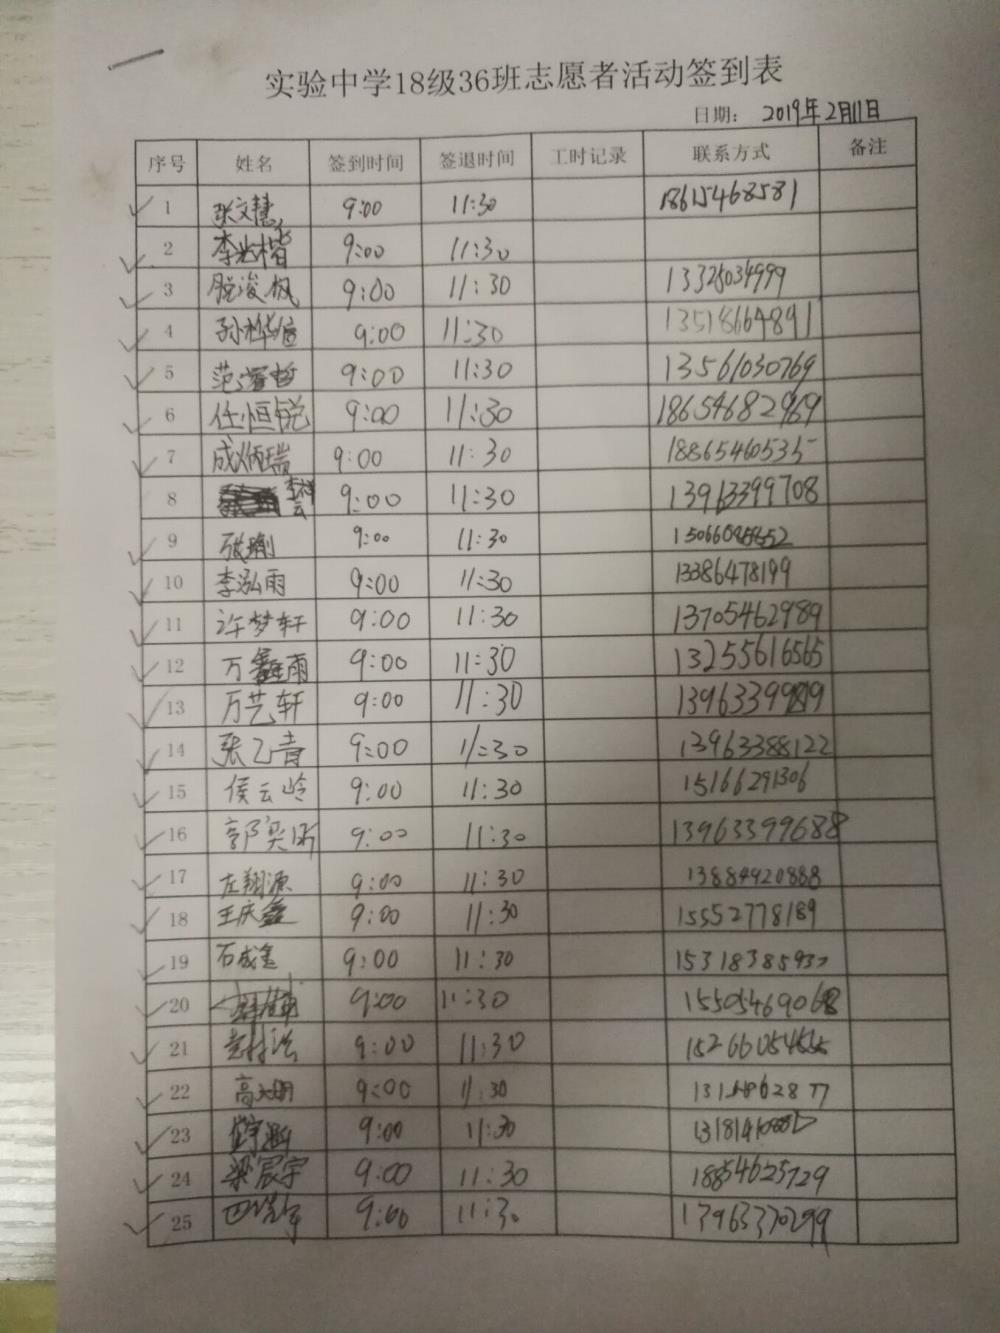 实验中学18级36班志愿者活动签到表
日期: 2019年2月11日
序号 姓名 签到时间 签退时间 工时记录 联系方式 备注
1 张文慧 9:00 11:30 18615468581
2 李光楷 9:00 11:30
3 脱浚枫 9:00 11:30 13325034999
4 孙桦 9:00 11:30 13518664891
5 范 哲 9:00 11:30 13561030769
6 任恒锐 9:00 11:30 18654682969
7 成炳瑞 9:00 11:30 18865460535
8 李祥云 9:00 11:30 13963399708
9 张 9:00 11:30
10 李泓雨 9:00 11:30 13386478199
11 许梦轩 9:00 11:30 13705462989
12 万鑫雨 9:00 11:30 13255616565
13 万艺轩 9:00 11:30
14 张乙青 9:00 11:30 13963388122
15 侯云岭 9:00 11:30 15166291306
16 郭奕昕 9:00 11:30 13963399688
17 左翔源 9:00 11:30 13884920888
18 王庆鑫 9:00 11:30 15552778189
19 石成鑫 9:00 11:30
20 9:00 11:30
21 9:00 11:30
22 高 明 9:00 11:30
23 9:00 11:30
24 梁宸宇 9:00 11:30 18854625729
25 9:00 11:30 13963370299